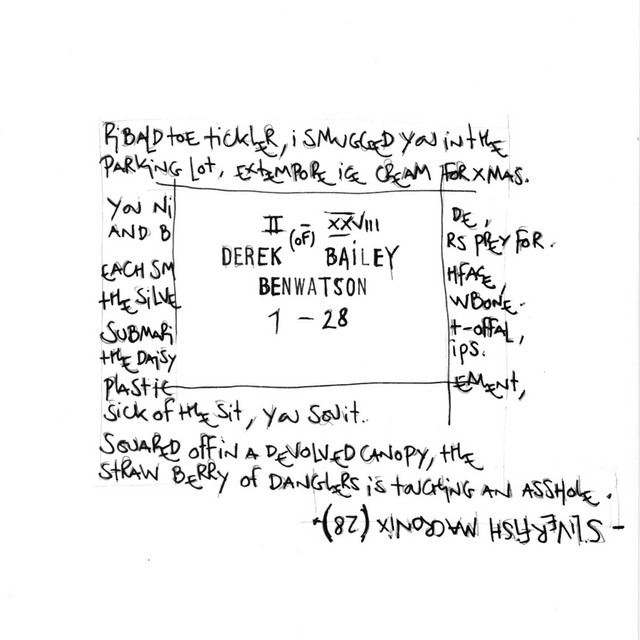 RiBALD TOE TICKLER, i SMUGGED YOU IN THE
PARKING LOT, EXTEMPORE ICE CREAM FOR XMAS.
YOU Ni
DE,
AND B
RS PREY FOR.
EACH SM
HFACE,
THE SILVE
WBONE.
SUBMARi
T-OFFAL,
THE DAISY
iPS.
PLASTIC
EMENT,
SICK OF THE SIT, YOU
SQUARED OFF IN A DEVOLVED CANOPY, THE
STRAW BERRY OF DANGLERS IS TOUCHING AN ASSHOLE.
II (OF) XXVIII
DEREK BAiLEY
BENWATSON
1 - 28
- SILVERFISH MACRONIX (28)-